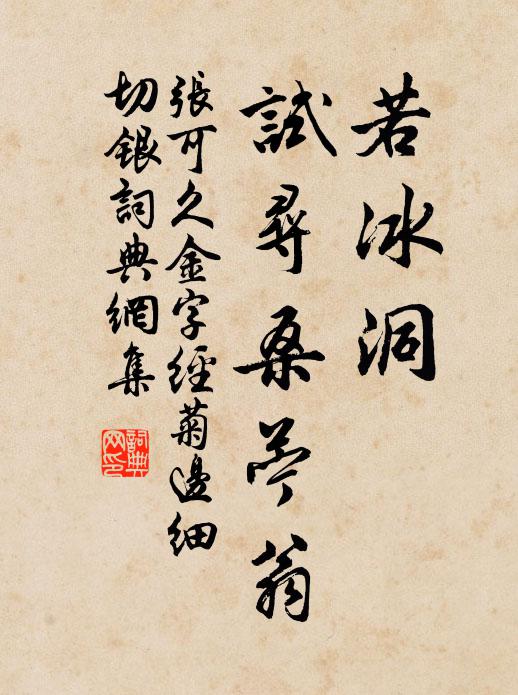 若冰洞
試尋桑苧翁
張可久金字經菊邊細
切銀詞典網集
詞典网印